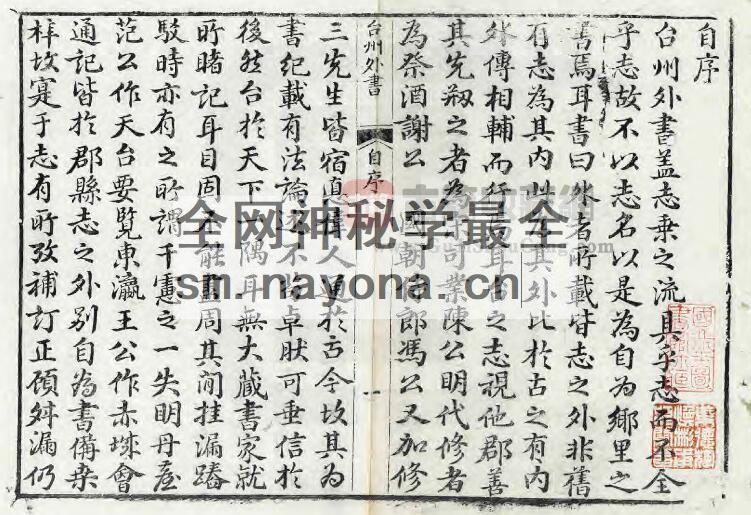 自序
台州外書蓋志乗之流具乎志而不全
乎志故不以志名以是為自為鄉里之
書焉耳書曰外者所載皆志之外非舊
有志為其內此為其外比於古之有內
外傳相輔而行焉耳台之志視他郡善
其先剏之者為宋可業陳公明代修者
為祭酒謝公 國朝侍郎馮公又加修
台州外書
自序
一
三先生皆宿直偉人通於古今故其為
書紀載有法論不卓然可垂信於
後然台於天下一隅耳無大藏書家就
所睹記耳目固不能盡周其間挂漏踳
駁時亦有之所謂千慮之一失明丹崖
范公作天台要覽東瀛王公作赤城會
通記皆於郡縣志之外別自為書備桑
梓故寔于志有所攷補訂正碩舛漏仍
全网神秘学最全
sm.nayona.cn